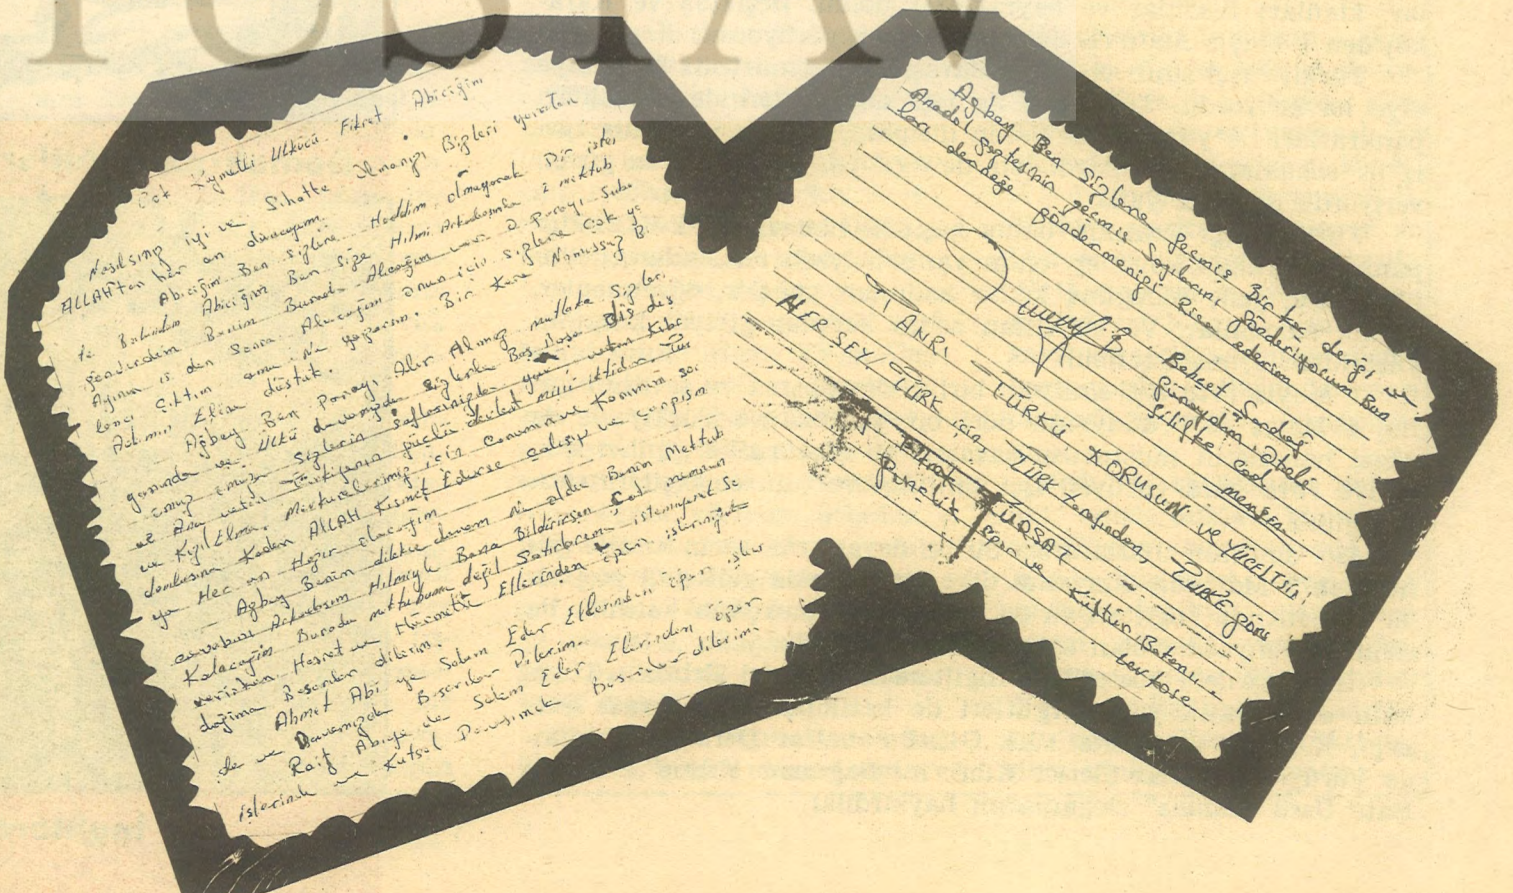 TÜSTAV
Çok Kıymetli Ülkücü Fikret Abiciğim
Nasılsınız iyi ve Sıhatte olmanızı Bizleri yaratan
ALLAH'tan her an dilerim.
Abiciğim Ben sizlere Haddim olmayarak Bir istek
te Bulundum Abiciğim Ben size Hilmi Arkadaşımla 2 mektub
gönderdim Benim Burada Alacağım var o parayı Şuba
Ayının is den Sonra Alacağım onun için sizlere Çok ya
lancı Çıktım ama Ne yaparsın. Bir Kere Namussuz Bi
Adamın Eline düstük.
Ağbey Ben Parayı Alır Almaz mutlaka Sizleri
yanında ve Ülkü davamızda Sizlerle Baş Başa diş diş
omuz omuza Sizlerin Saflarınızda
az Ana vatan Türkiyenin güçlü devlet milli iktidar Tur
ve Kızıl Elma. Mefkurelerimiz için canımın ve Kanımın son
damlasına Kadar ALLAH Kısmet Ederse çalışıp ve çarpışm
ya Her an Hazır olacağım
Ağbey Benim dilekce durum Ne oldu Benim Mettub
cevabını Arkadaşım Hilmiyle Bana Bildirirsen Çok memnun
Kalacağım Burada mettubuma değil Satırlarıma istemiyerek So
verirken Hasret ve Hürmetle Ellerinden öper işlerinizde
dağıma Başarılar dilerim.
Ahmet Abi ye Selam Eder Ellerinden öper işler
de ve Davamızda Başarılar Dilerim.
Raif Abiye de Selam Eder Ellerinden öper
işlerinde ve Kutsal Davasımda Başarılar dilerim.
Ağbey Ben Sizlere geçmiş Bir kac dergi ve
Anadol gaztesinin geçmiş Sayılarını gönderiyorum Bun
ları derneğe göndermenizi Rica ederim
Behcet Sandağ
Günaydın oteli
Silifke Cad
mersin
TANRI TÜRKÜ KORUSUN ve YÜCELTSİN!
HERŞEY, TÜRK için, TÜRK tarafından, TÜRKE göre
KÜRŞAT